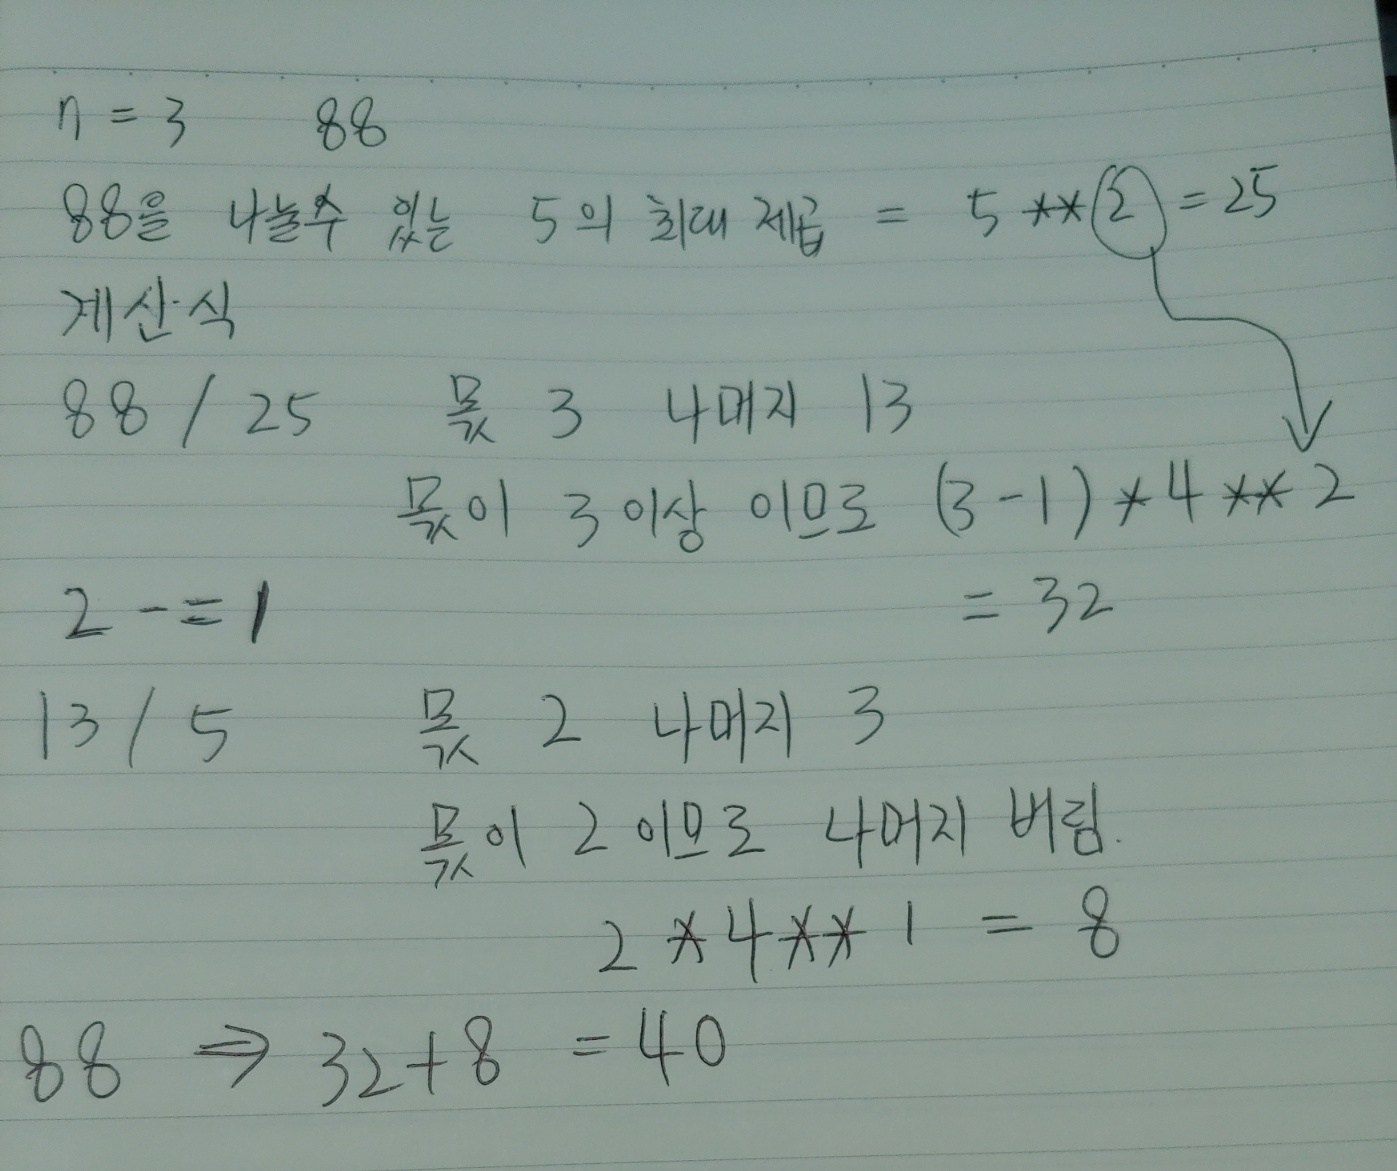 n = 3 88
88을 나눌수 있는 5의 최대 제곱 = 5 ** 2 = 25
계산식
88 / 25 몫 3 나머지 13
몫이 3이상 이므로 (3-1) * 4 ** 2
2 -= 1 = 32
13 / 5 몫 2 나머지 3
몫이 2 이므로 나머지 버림.
2 * 4 ** 1 = 8
88 ⇒ 32+8 = 40